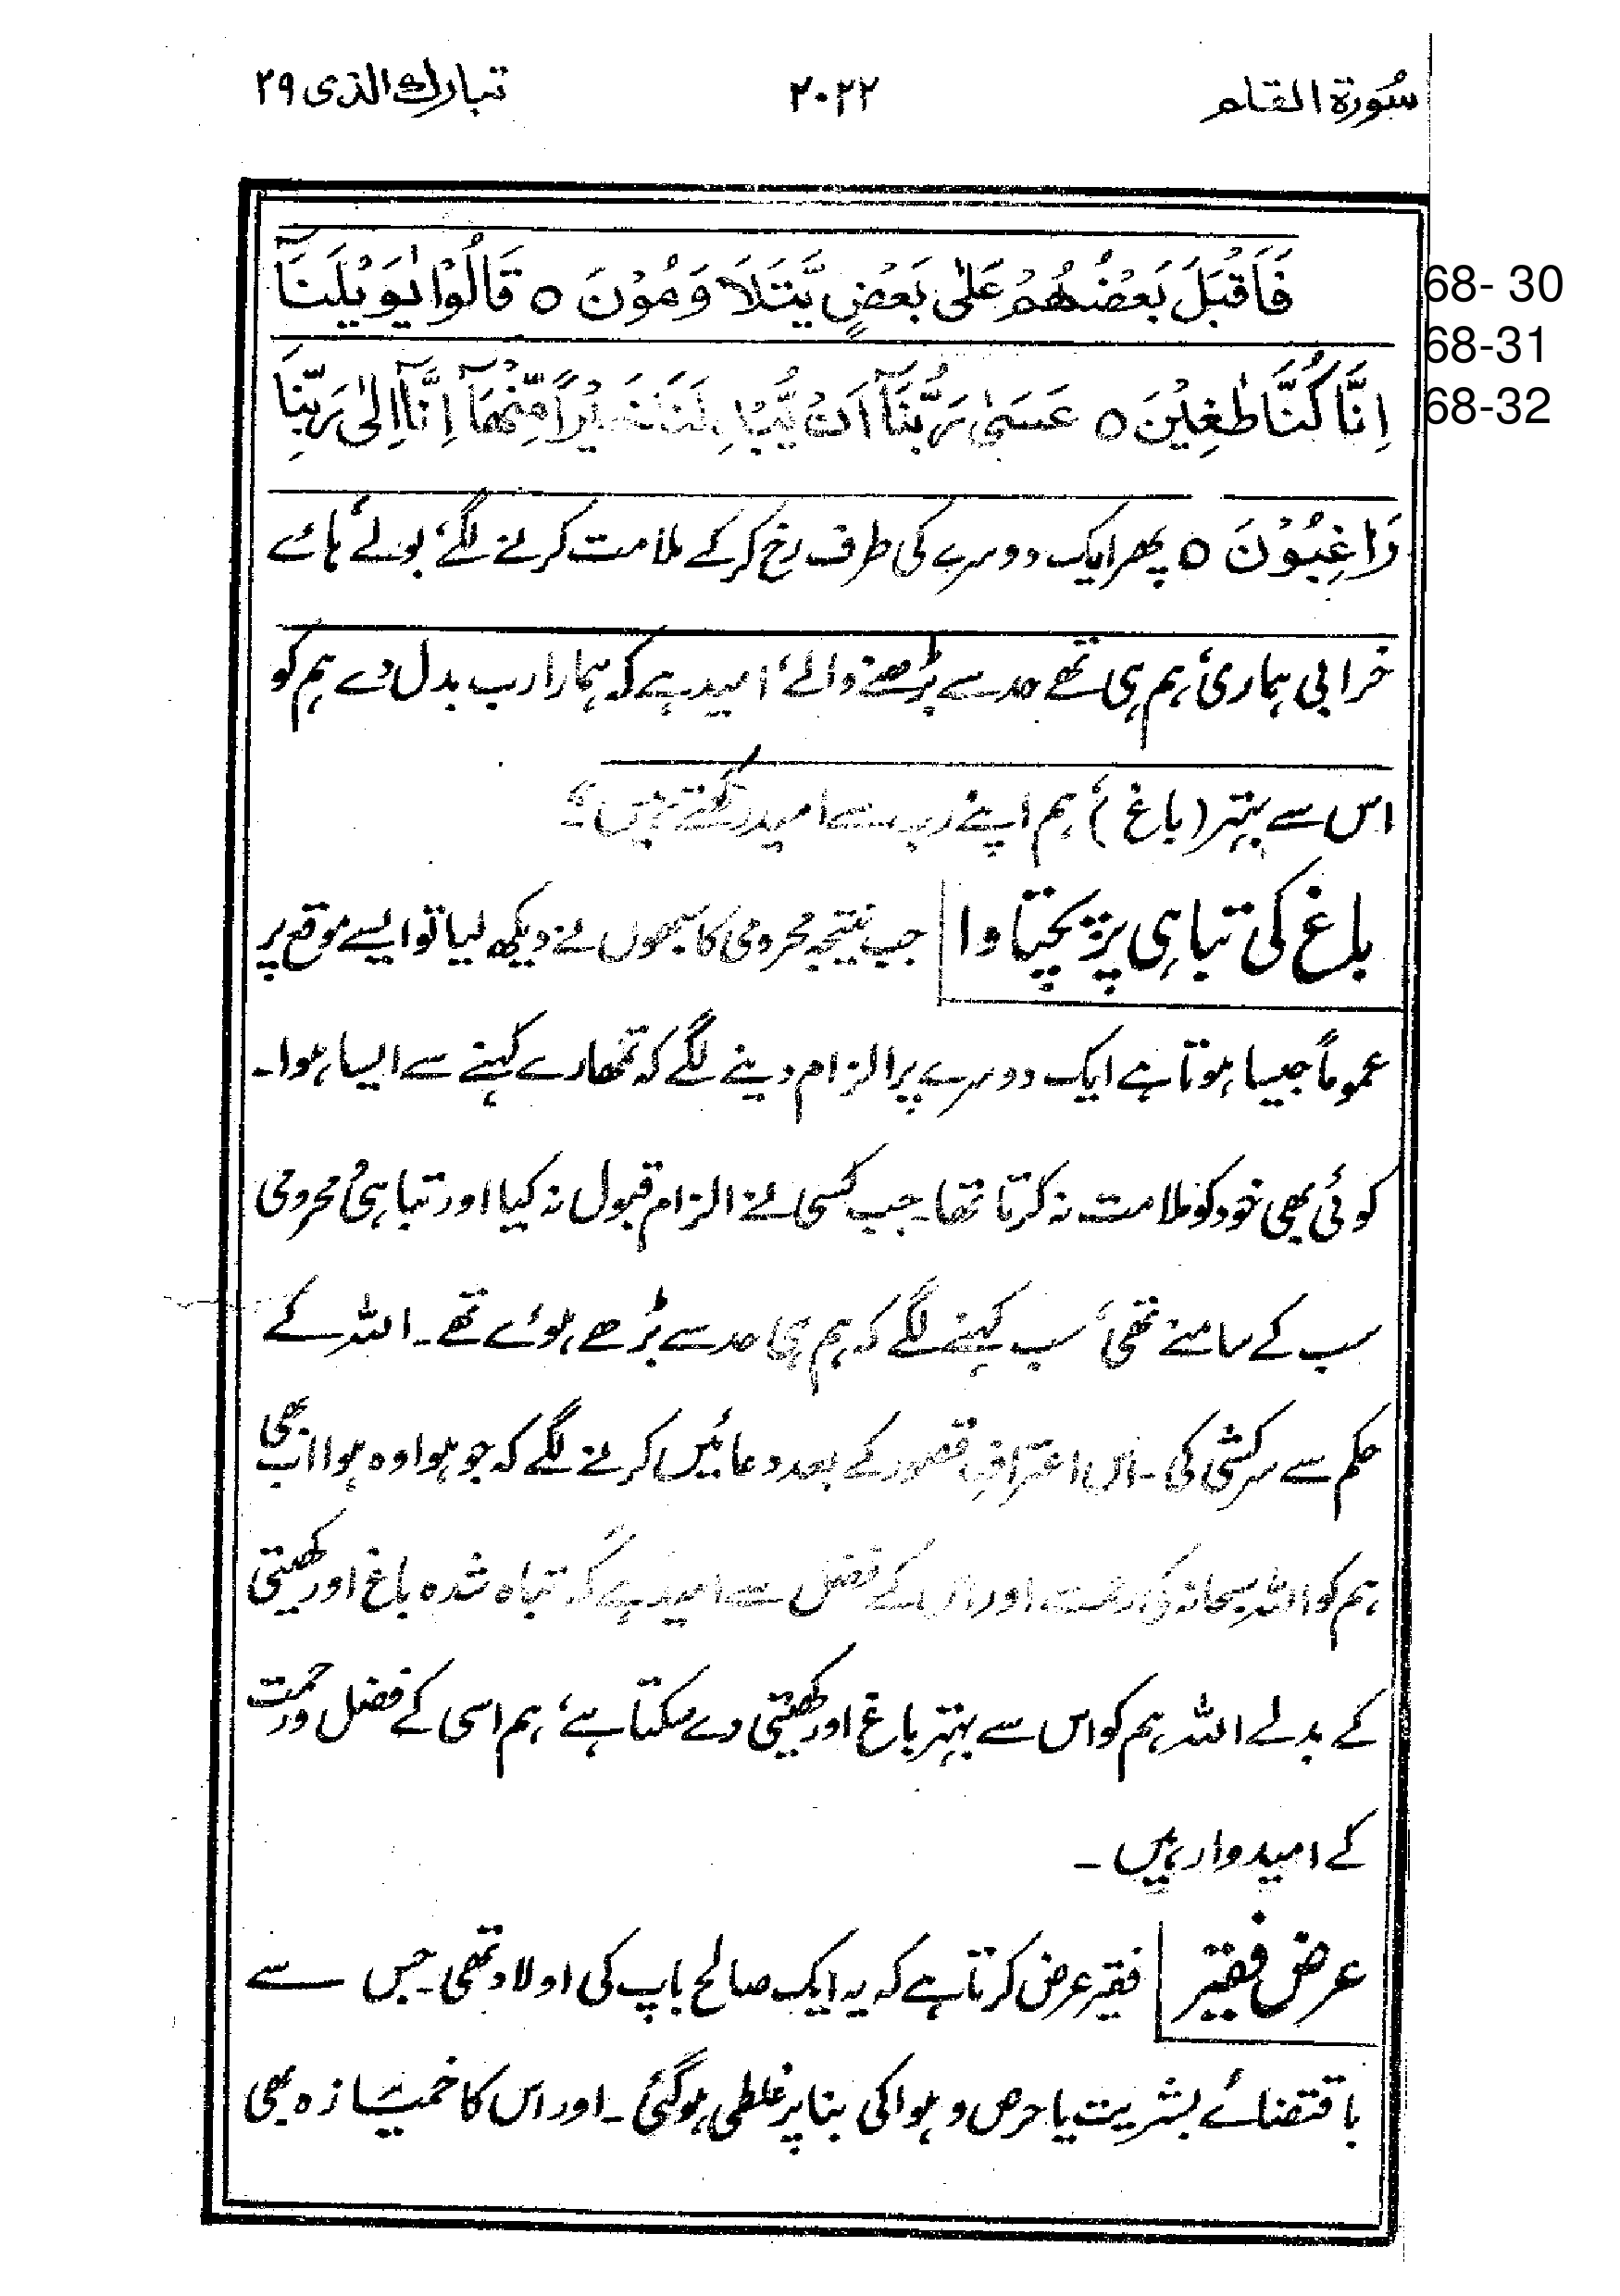 سُورة القلم
۲۰۲۲
تبارك الذی ۲۹
فَاَقْبَلَ بَعْضُهُمْ عَلٰى بَعْضٍ يَّتَلَاوَمُوْنَ ٥ قَالُوْا يٰوَيْلَنَآ
68- 30
68-31
اِنَّا كُنَّا طٰغِيْنَ ٥ عَسٰى رَبُّنَآ اَنْ يُّبْدِلَنَا خَيْرًا مِّنْهَآ اِنَّآ اِلٰى رَبِّنَا
68-32
رَاغِبُوْنَ ٥ پھر ایک دوسرے کی طرف رخ کرکے ملامت کرنے لگے، بولے ہائے
خرابی ہماری، ہم ہی تھے حد سے بڑھنے والے، امید ہے کہ ہمارا رب بدل دے ہم کو
اس سے بہتر (باغ)، ہم اپنے رب سے امید رکھتے ہیں ؂
باغ کی تباہی پر پچتاوا جب نتیجہ محرومی کا سبھوں نے دیکھ لیا تو ایسے موقع پر
عموماً جیسا ہوتا ہے ایک دوسرے پر الزام دینے لگے کہ تمھارے کہنے سے ایسا ہوا۔
کوئی بھی خود کو ملامت نہ کرتا تھا۔ جب کسی نے الزام قبول نہ کیا اور تباہی و محرومی
سب کے سامنے تھی، سب کہنے لگے کہ ہم ہی حد سے بڑھے ہوئے تھے۔ اللہ کے
حکم سے سرکشی کی۔ اس اعترافِ قصور کے بعد دعائیں کرنے لگے کہ جو ہوا وہ ہوا اب بھی
ہم کو اللہ سبحانہ کی رحمت اور اس کے فضل سے امید ہے کہ تباہ شدہ باغ اور کھیتی
کے بدلے اللہ ہم کو اس سے بہتر باغ اور کھیتی دے سکتا ہے، ہم اسی کے فضل و رحمت
کے امیدوار ہیں ۔
عرض فقیر فقیر عرض کرتا ہے کہ یہ ایک صالح باپ کی اولاد تھی۔ جس سے
باقتضائے بشریت یا حرص و ہوا کی بنا پر غلطی ہو گئی۔ اور اس کا خمیازہ بھی